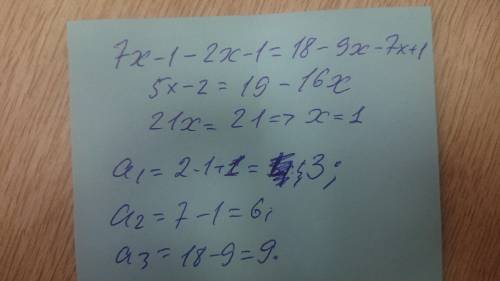 7x-1-2x-1=18-9x-7x+1
5x-2=19-16x
21x=21=>x=1
a1=2·1+1=3;
a2=7-1=6;
a3=18-9=9.